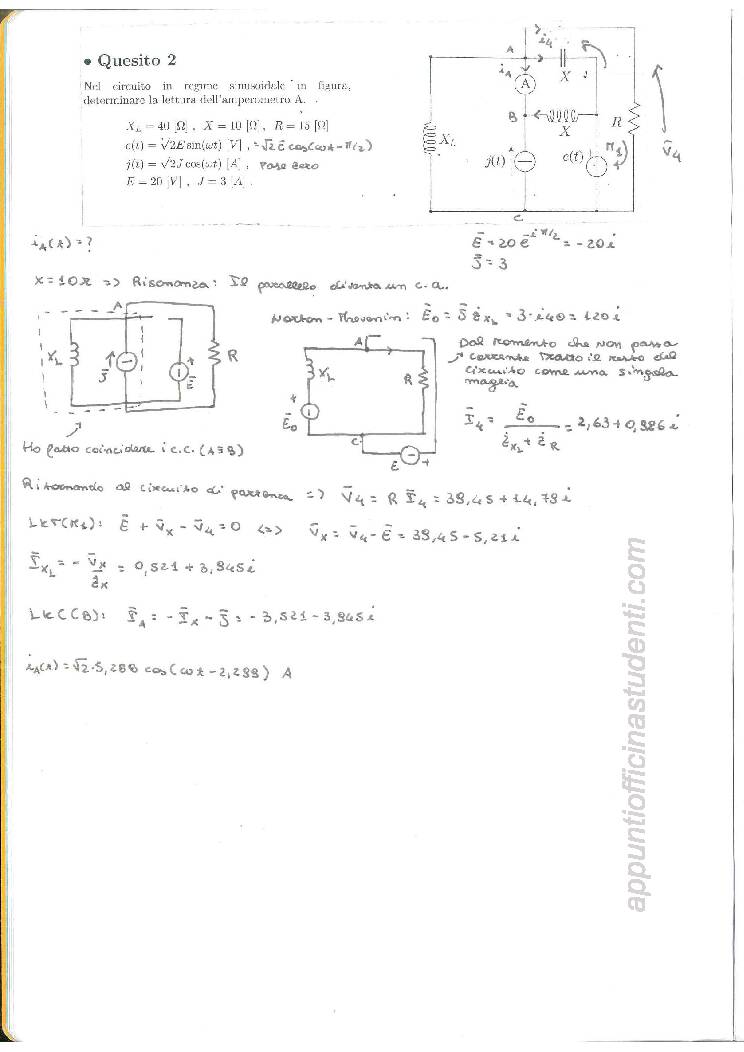 • Quesito 2
Nel circuito in regime sinusoidale in figura,
determinare la lettura dell'amperometro A.
X_L = 40 [Ω] , X = 10 [Ω] , R = 15 [Ω]
e(t) = √2E sin(ωt) [V] , = √2 E cos(ωt - π/2)
j(t) = √2J cos(ωt) [A] , FASE ZERO
E = 20 [V] , J = 3 [A] .
A
i4
iA
A
X
B
X
R
X_L
j(t)
e(t)
M1
V̄4
C
iA(t) = ?
Ē = 20 e^-iπ/2 = -20i
J̄ = 3
X = 10Ω => Risonanza: Il parallelo diventa un c.a.
A
X_L
J̄
Ē
R
Norton-Thevenin: Ē0 = J̄ żXL = 3·i40 = 120i
A
X_L
R
Ē0
C
E
Dal momento che non passa
corrente tratto il resto del
circuito come una singola
maglia
Ī4 = Ē0 / (żXL + żR) = 2,63 + 0,986i
Ho fatto coincidere i c.c. (A≡B)
Ritornando al circuito di partenza => V̄4 = R Ī4 = 39,45 + 14,79i
LKT(M1): Ē + V̄x - V̄4 = 0 <=> V̄x = V̄4 - Ē = 39,45 - 5,21i
ĪXL = - V̄x / żx = 0,521 + 3,945i
LKC(B): ĪA = -Īx - J̄ = -3,521 - 3,945i
iA(t) = √2·5,288 cos(ωt - 2,299) A
appuntiofficinastudenti.com